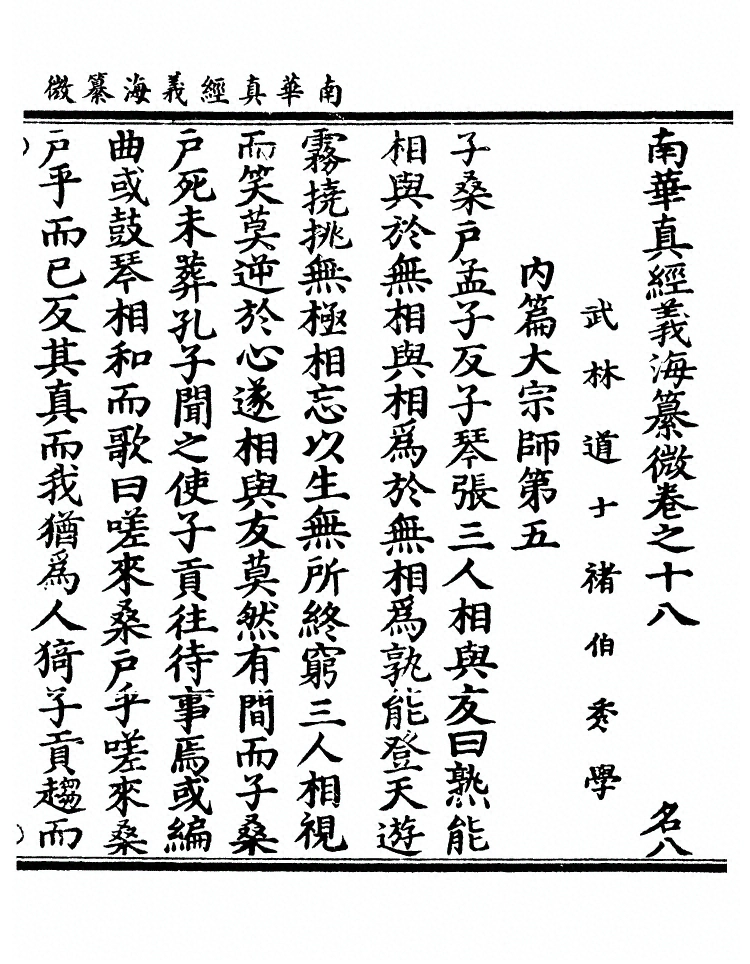 南華真經義海纂微
南華真經義海纂微卷之十八
名八
武林道士褚伯秀學
內篇大宗師第五
子桑戶孟子反子琴張三人相與友曰熟能
相與於無相與相為於無相為孰能登天遊
霧撓挑無極相忘以生無所終窮三人相視
而笑莫逆於心遂相與友莫然有間而子桑
戶死未葬孔子聞之使子貢往待事焉或編
曲或鼓琴相和而歌曰嗟來桑戶乎嗟來桑
戶乎而已反其真而我猶為人猗子貢趨而